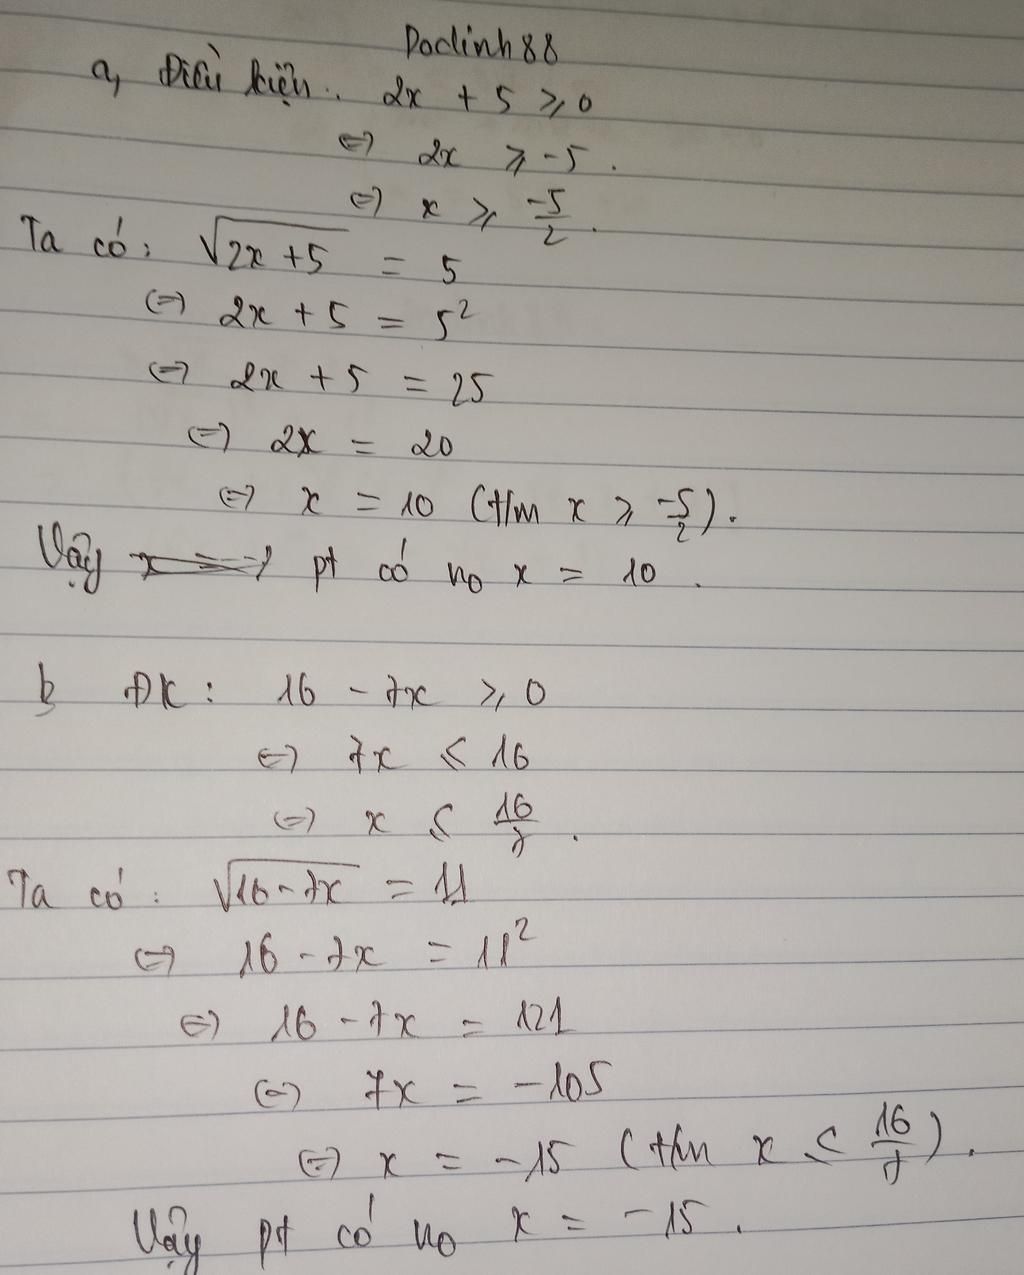 Doclinh88
a, Điều kiện: 2x + 5 ⩾ 0
⇔ 2x ⩾ -5.
⇔ x ⩾ -5/2.
Ta có: √(2x+5) = 5
⇔ 2x + 5 = 5²
⇔ 2x + 5 = 25
⇔ 2x = 20
⇔ x = 10 (t/m x ⩾ -5/2).
Vậy pt có no x = 10.
b ĐK: 16 - 7x ⩾ 0
⇔ 7x ⩽ 16
⇔ x ⩽ 16/7.
Ta có: √(16-7x) = 11
⇔ 16 - 7x = 11²
⇔ 16 - 7x = 121
⇔ 7x = -105
⇔ x = -15 (t/m x ⩽ 16/7).
Vậy pt có no x = -15.